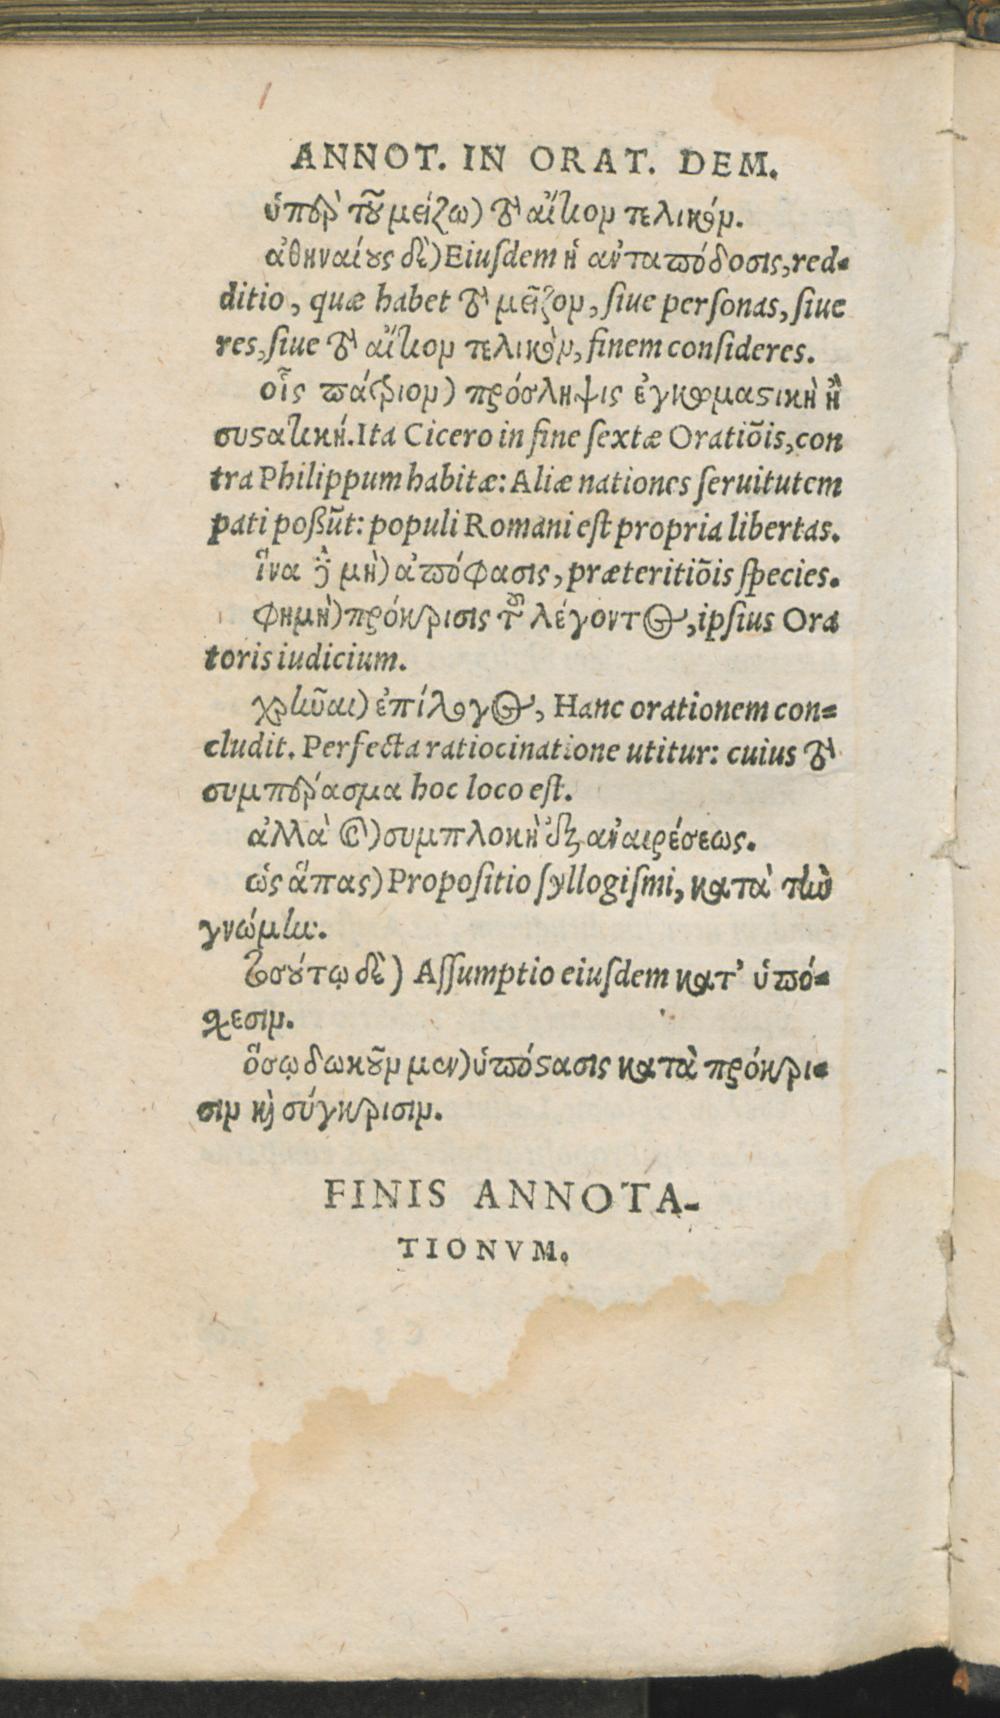 ANNOT. IN ORAT. DEM.
ὑπὲρ τοῦ μείζω) τὸ αἴτιον τελικόν.
ἀθηναίους δὲ) Eiuſdem ἡ ἀνταπόδοσις, red-
ditio, quæ habet τὸ μεῖζον, ſiue perſonas, ſiue
res, ſiue τὸ αἴτιον τελικὸν, finem conſideres.
οἷς πάτριον) πρόσληψις ἐγκωμαστικὴ ἢ
συστατική. Ita Cicero in fine ſextæ Oratiõis, con
tra Philippum habitæ: Aliæ nationes ſeruitutem
pati poßũt: populi Romani eſt propria libertas.
ἵνα δὲ μὴ) ἀπόφασις, præteritiõis ſpecies.
φημὴ) πρόκρισις τοῦ λέγοντος, ipſius Ora
toris iudicium.
χρῆναι) ἐπίλογος, Hanc orationem con-
cludit. Perfecta ratiocinatione utitur: cuius τὸ
συμπέρασμα hoc loco eſt.
ἀλλὰ καὶ) συμπλοκὴ ἐξ ἀναιρέσεως.
ὡς ἅπας) Propoſitio ſyllogiſmi, κατὰ τὴν
γνώμην.
τοσούτῳ δὲ) Aſſumptio eiuſdem κατ' ὑπό-
θεσιν.
ὅσῳ δωκοῦμεν) ὑπόστασις κατὰ πρόκρι-
σιν καὶ σύγκρισιν.
FINIS ANNOTA-
TIONVM.